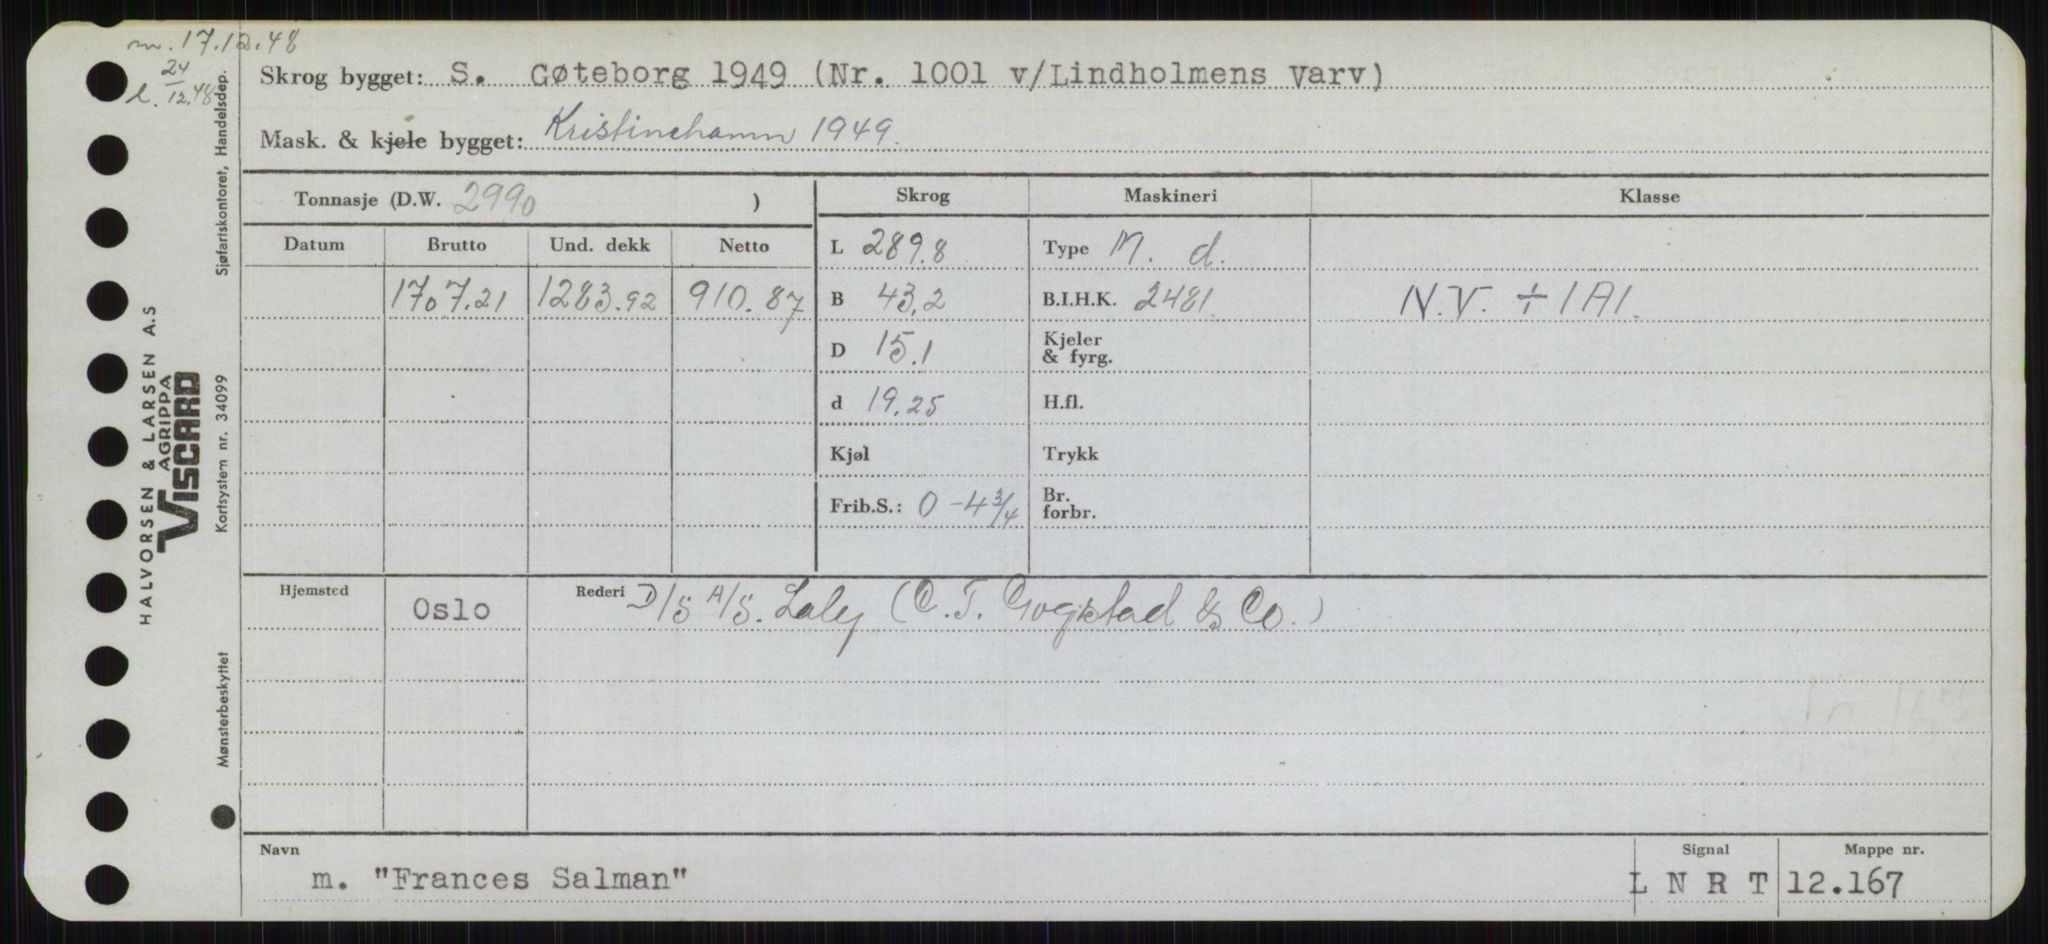 m. 17.12.48
l. 24/12.48
Skrog bygget: S. Gøteborg 1949 (Nr. 1001 v/Lindholmens Varv)
Mask. & kjele bygget: Kristinehamn 1949.
Tonnasje (D.W. 2990 )
Skrog Maskineri Klasse
Datum Brutto Und. dekk Netto
L 289.8 Type M. d.
1707.21 1283.92 910.87 B 43,2 B.I.H.K. 2481. N.V. + 1A1.
D 15.1 Kjeler & fyrg.
d 19.25 H.fl.
Kjøl Trykk
Frib.S.: 0-4 3/4 Br. forbr.
Hjemsted Oslo Rederi D/S A/S. Laly (C. T. Gogstad & Co.)
Navn Signal Mappe nr.
m. "Frances Salman" L N R T 12.167
Sjøfartskontoret, Handelsdep.
Kortsystem nr. 34099
Mønsterbeskyttet
HALVORSEN & LARSEN A.S
AGRIPPA
VISCARD